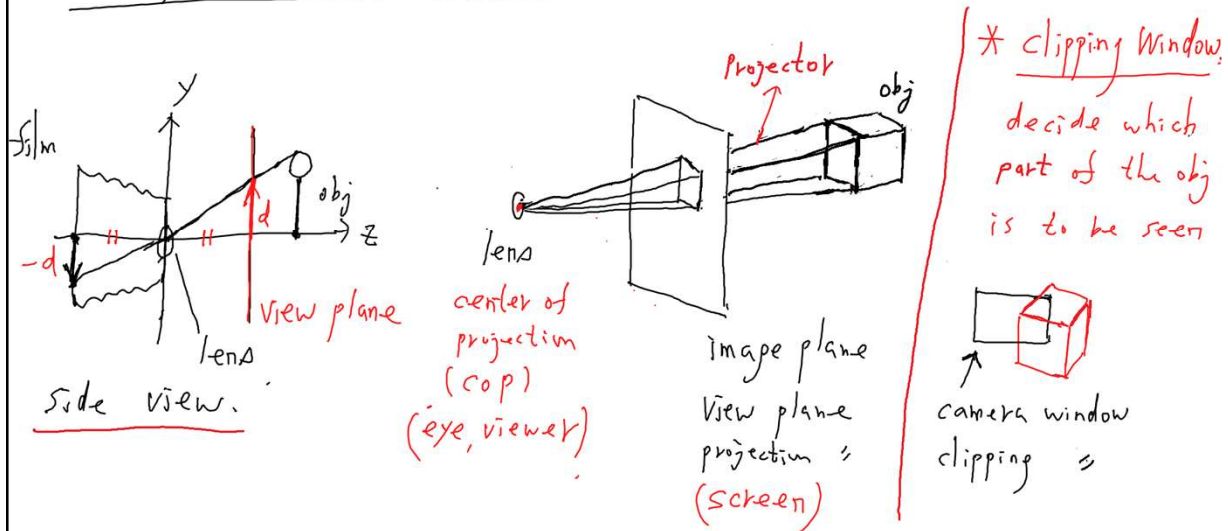 Y
film
obj
d
z
-d
View plane
lens
side view.
Projector
obj
lens
center of
projection
(COP)
(eye, viewer)
image plane
View plane
projection "
(screen)
* Clipping Window.
decide which
part of the obj
is to be seen
camera window
clipping "